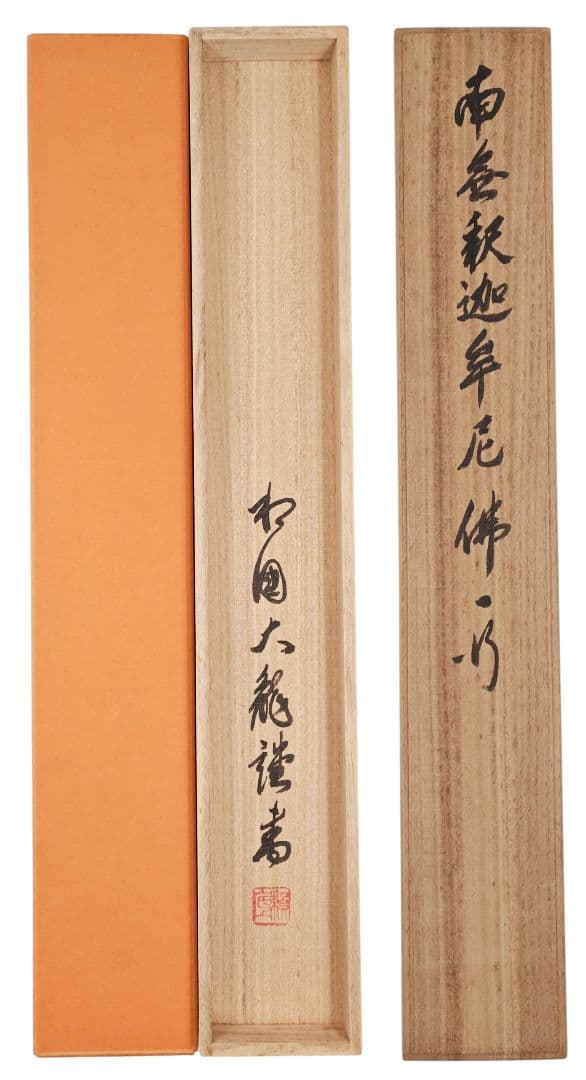 南無釈迦牟尼佛一行
相國大龍謹書